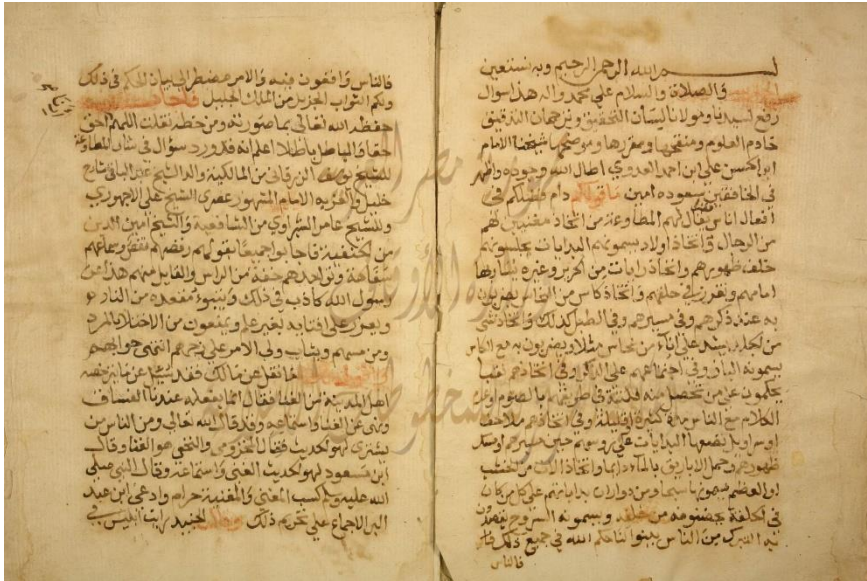 بسم الله الرحمن الرحيم وبه نستعين
والصلاة والسلام على محمد واله هذا سوال
رفع لسيدنا ومولانا لسان التحقيق وترجمان التدقيق
خادم العلوم ومنقحها ومقررها وموضحها شيخنا الامام
ابو الحسن علي ابن احمد العدوي اطال الله وجوده واظهر
في الخافقين سعوده امين ما قولكم دام فضلكم في
افعال اناس يقال لهم المطاوعة من اتخاذ مغنيين لهم
من الرجال واتخاذ اولاد يسمونهم البدايات يجلسونهم
خلف ظهورهم واتخاذ رايات من الحرير وغيره
امامهم وتغرز في حلقهم واتخاذ كاس من النحاس يضربون
به عند ذكرهم وفي سيرهم وفي الطبل كذلك واتخاذ شي
من الجلد يشد على اناء من نحاس مثلا ويضربون به مع الكاس
يسمونه الباز وفي اجتماعهم على الذكر وفي اتخاذهم نقبا
يحكمون على من تحصل منه فلتة في طريقهم بالصوم وعدم
الكلام مع الناس مدة كثيرة او قليلة وفي اتخاذهم ملاحف
او سراويل تضعها البدايات على روسهم حين مسيرهم وشد
ظهورهم وحمل الاباريق بالماء دايما واتخاذ الات من الخشب
او العظم يسمونها سبحا ومن دوران بداياتهم على كل من كان
في الحلقة يحضنونه من خلفه ويسمونه السروح يقصدون
به التبرك من الناس بينوا لنا حكم الله في جميع ذلك
فالناس
فالناس واقفون فيه والامر مضطر الى بيان الحكم في ذلك
ولكم الثواب الجزيل من الملك الجليل فاجاب
حفظه الله تعالى بما صورته ومن خطه نقلت اللهم احق
حقا والباطل باطلا اعلم انه قد ورد سؤال في شان المطاوعة
للشيخ يوسف الزرقاني من المالكية والد الشيخ عبد الباقي شارح
خليل والامام المشهور عصري الشيخ علي الاجهوري
وللشيخ عامر الشبراوي من الشافعية والشيخ امين الدين
من الحنفية فاجابوا جميعا بقولهم رقصهم نقص وسماعهم
سفاهة وتواجدهم خفة من الراس والقايل منهم هذا عن
رسول الله كاذب في ذلك وليتبوء مقعده من النار
ويعزر على افتايه بغير علم ويمنعون من الاختلا بالمرد
ومن مسهم ويثاب ولي الامر على زجرهم انتهى جوابهم
ما نقل عن مالك فقد سئل عن ما يرخصه
اهل المدينة من الغنا فقال انما يفعله عندنا الفساق
ونهى عن الغنا واستماعه وقد قال الله تعالى ومن الناس من
يشتري لهو الحديث فقال المخزومي والنخعي هو الغنا وقال
ابن مسعود لهو الحديث الغنى واستماعه وقال النبي صلى
الله عليه وسلم كسب المغني والمغنية حرام وادعى ابن عبد
البر الاجماع على تحريم ذلك وقال الجنيد رايت ابليس في